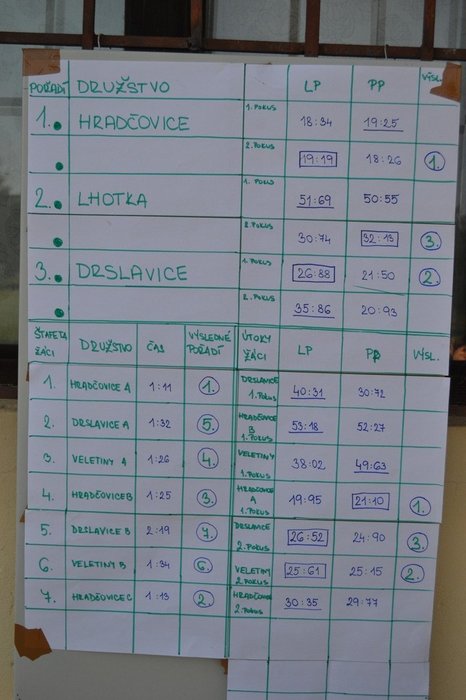 POŘADÍ DRUŽSTVO LP PP VÝSL.
1. HRADČOVICE 1. POKUS 18:34 19:25
2. POKUS 19:19 18:26 1.
2. LHOTKA 1. POKUS 51:69 50:55
2. POKUS 30:74 32:13 3.
3. DRSLAVICE 1. POKUS 26:88 21:50 2.
2. POKUS 35:86 20:93
ŠTAFETA ŽÁCI DRUŽSTVO ČAS VÝSLEDNÉ POŘADÍ ÚTOKY ŽÁCI LP PP VÝSL.
1. HRADČOVICE A 1:11 1. DRSLAVICE 1. POKUS 40:31 30:72
2. DRSLAVICE A 1:32 5. HRADČOVICE B 1. POKUS 53:18 52:27
3. VELETINY A 1:26 4. VELETINY 1. POKUS 38:02 49:63
4. HRADČOVICE B 1:25 3. HRADČOVICE A 1. POKUS 19:95 21:10 1.
5. DRSLAVICE B 2:19 7. DRSLAVICE 2. POKUS 26:52 24:90 3.
6. VELETINY B 1:34 6. VELETINY 2. POKUS 25:61 25:15 2.
7. HRADČOVICE C 1:13 2. HRADČOVICE 2. POKUS 30:35 29:77